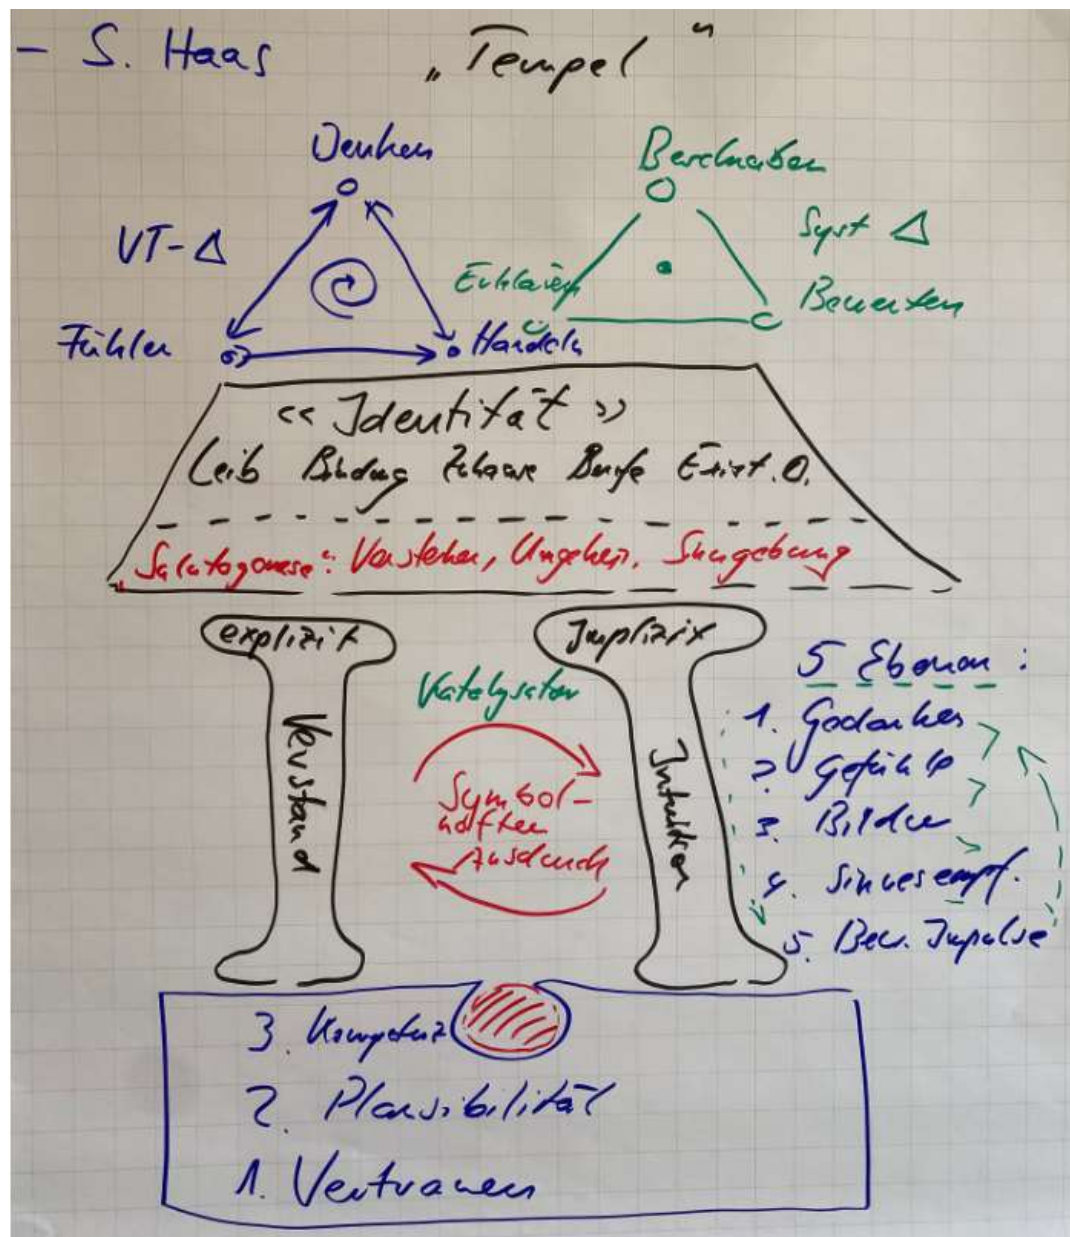 - S. Haas
„Tempel"
Denken
VT-Δ
Fühlen
Handeln
Beschreiben
Syst Δ
Erklären
Bewerten
<< Identität >>
Leib Bindung Zuhause Berufe Exist. O.
„Salutogenese": Verstehen, Umgehen, Sinngebung
explizit
Implizit
Verstand
Intuition
Katalysator
Symbol-
haften
Ausdruck
5 Ebenen :
1. Gedanken
2. Gefühle
3. Bilder
4. Sinnesempf.
5. Bew. Impulse
3. Kompetenz
2. Plausibilität
1. Vertrauen